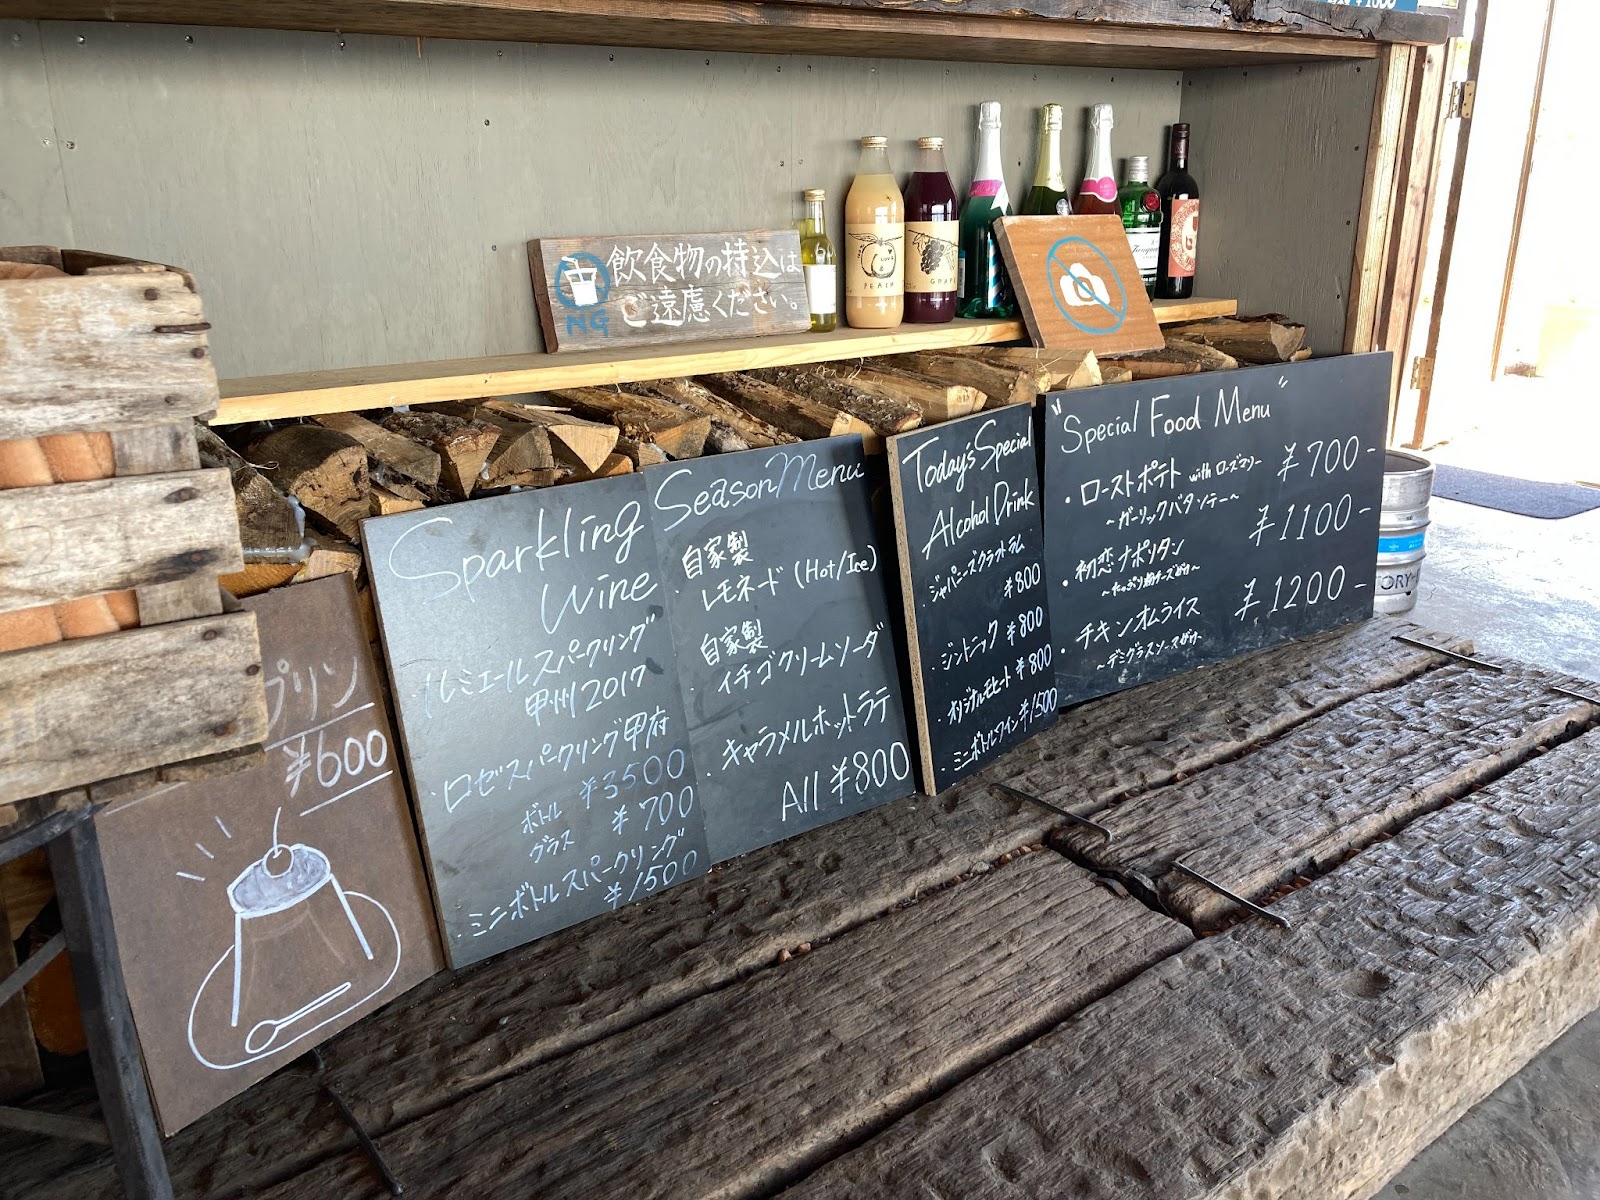 飲食物の持込は
NG
ご遠慮ください。
PEACH
プリン
¥600
Sparkling
Wine
・ルミエールスパークリング
甲州2017
・ロゼスパークリング甲府
ボトル ¥3500
グラス ¥700
・ミニボトルスパークリング
¥1500
Season Menu
・自家製
レモネード (Hot/Ice)
・自家製
イチゴクリームソーダ
・キャラメルホットラテ
All ¥800
Today's Special
Alcohol Drink
・ジャパニーズクラフトラム
¥800
・ジントニック ¥800
・オリジナルモヒート ¥800
・ミニボトルワイン ¥1500
"Special Food Menu"
・ローストポテト with ローズマリー ¥700-
~ガーリックバタンテー~
・初恋ナポリタン ¥1100-
・チキンオムライス ¥1200-
~デミグラスソースがけ~